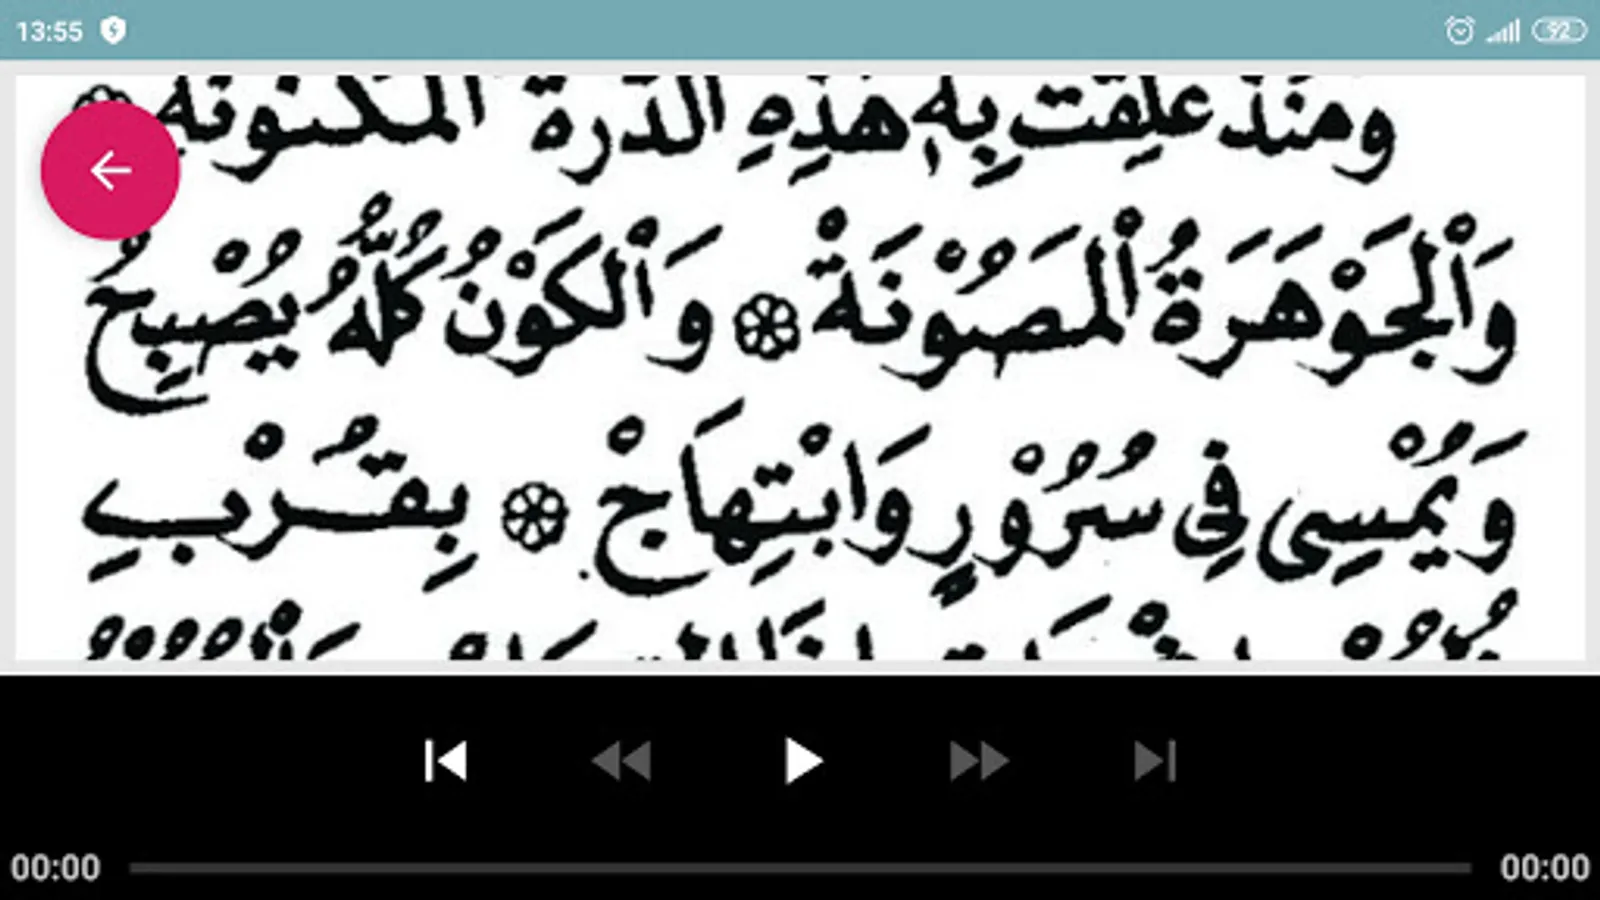 13:55
92
ومنذ علقت به هذه الدرة المكنونة
وَٱلْجَوْهَرَةُ ٱلْمَصُوْنَةْ ۞ وَٱلْكَوْنُ كُلُّهُ يُصْبِحُ
وَيُمْسِى فِى سُرُوْرٍ وَابْتِهَاجْ ۞ بِقُرْبِ
00:00
00:00